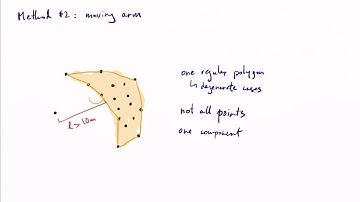 Method #2: moving arm
one regular polygon
↳ degenerate cases
not all points
one component
l > 10m